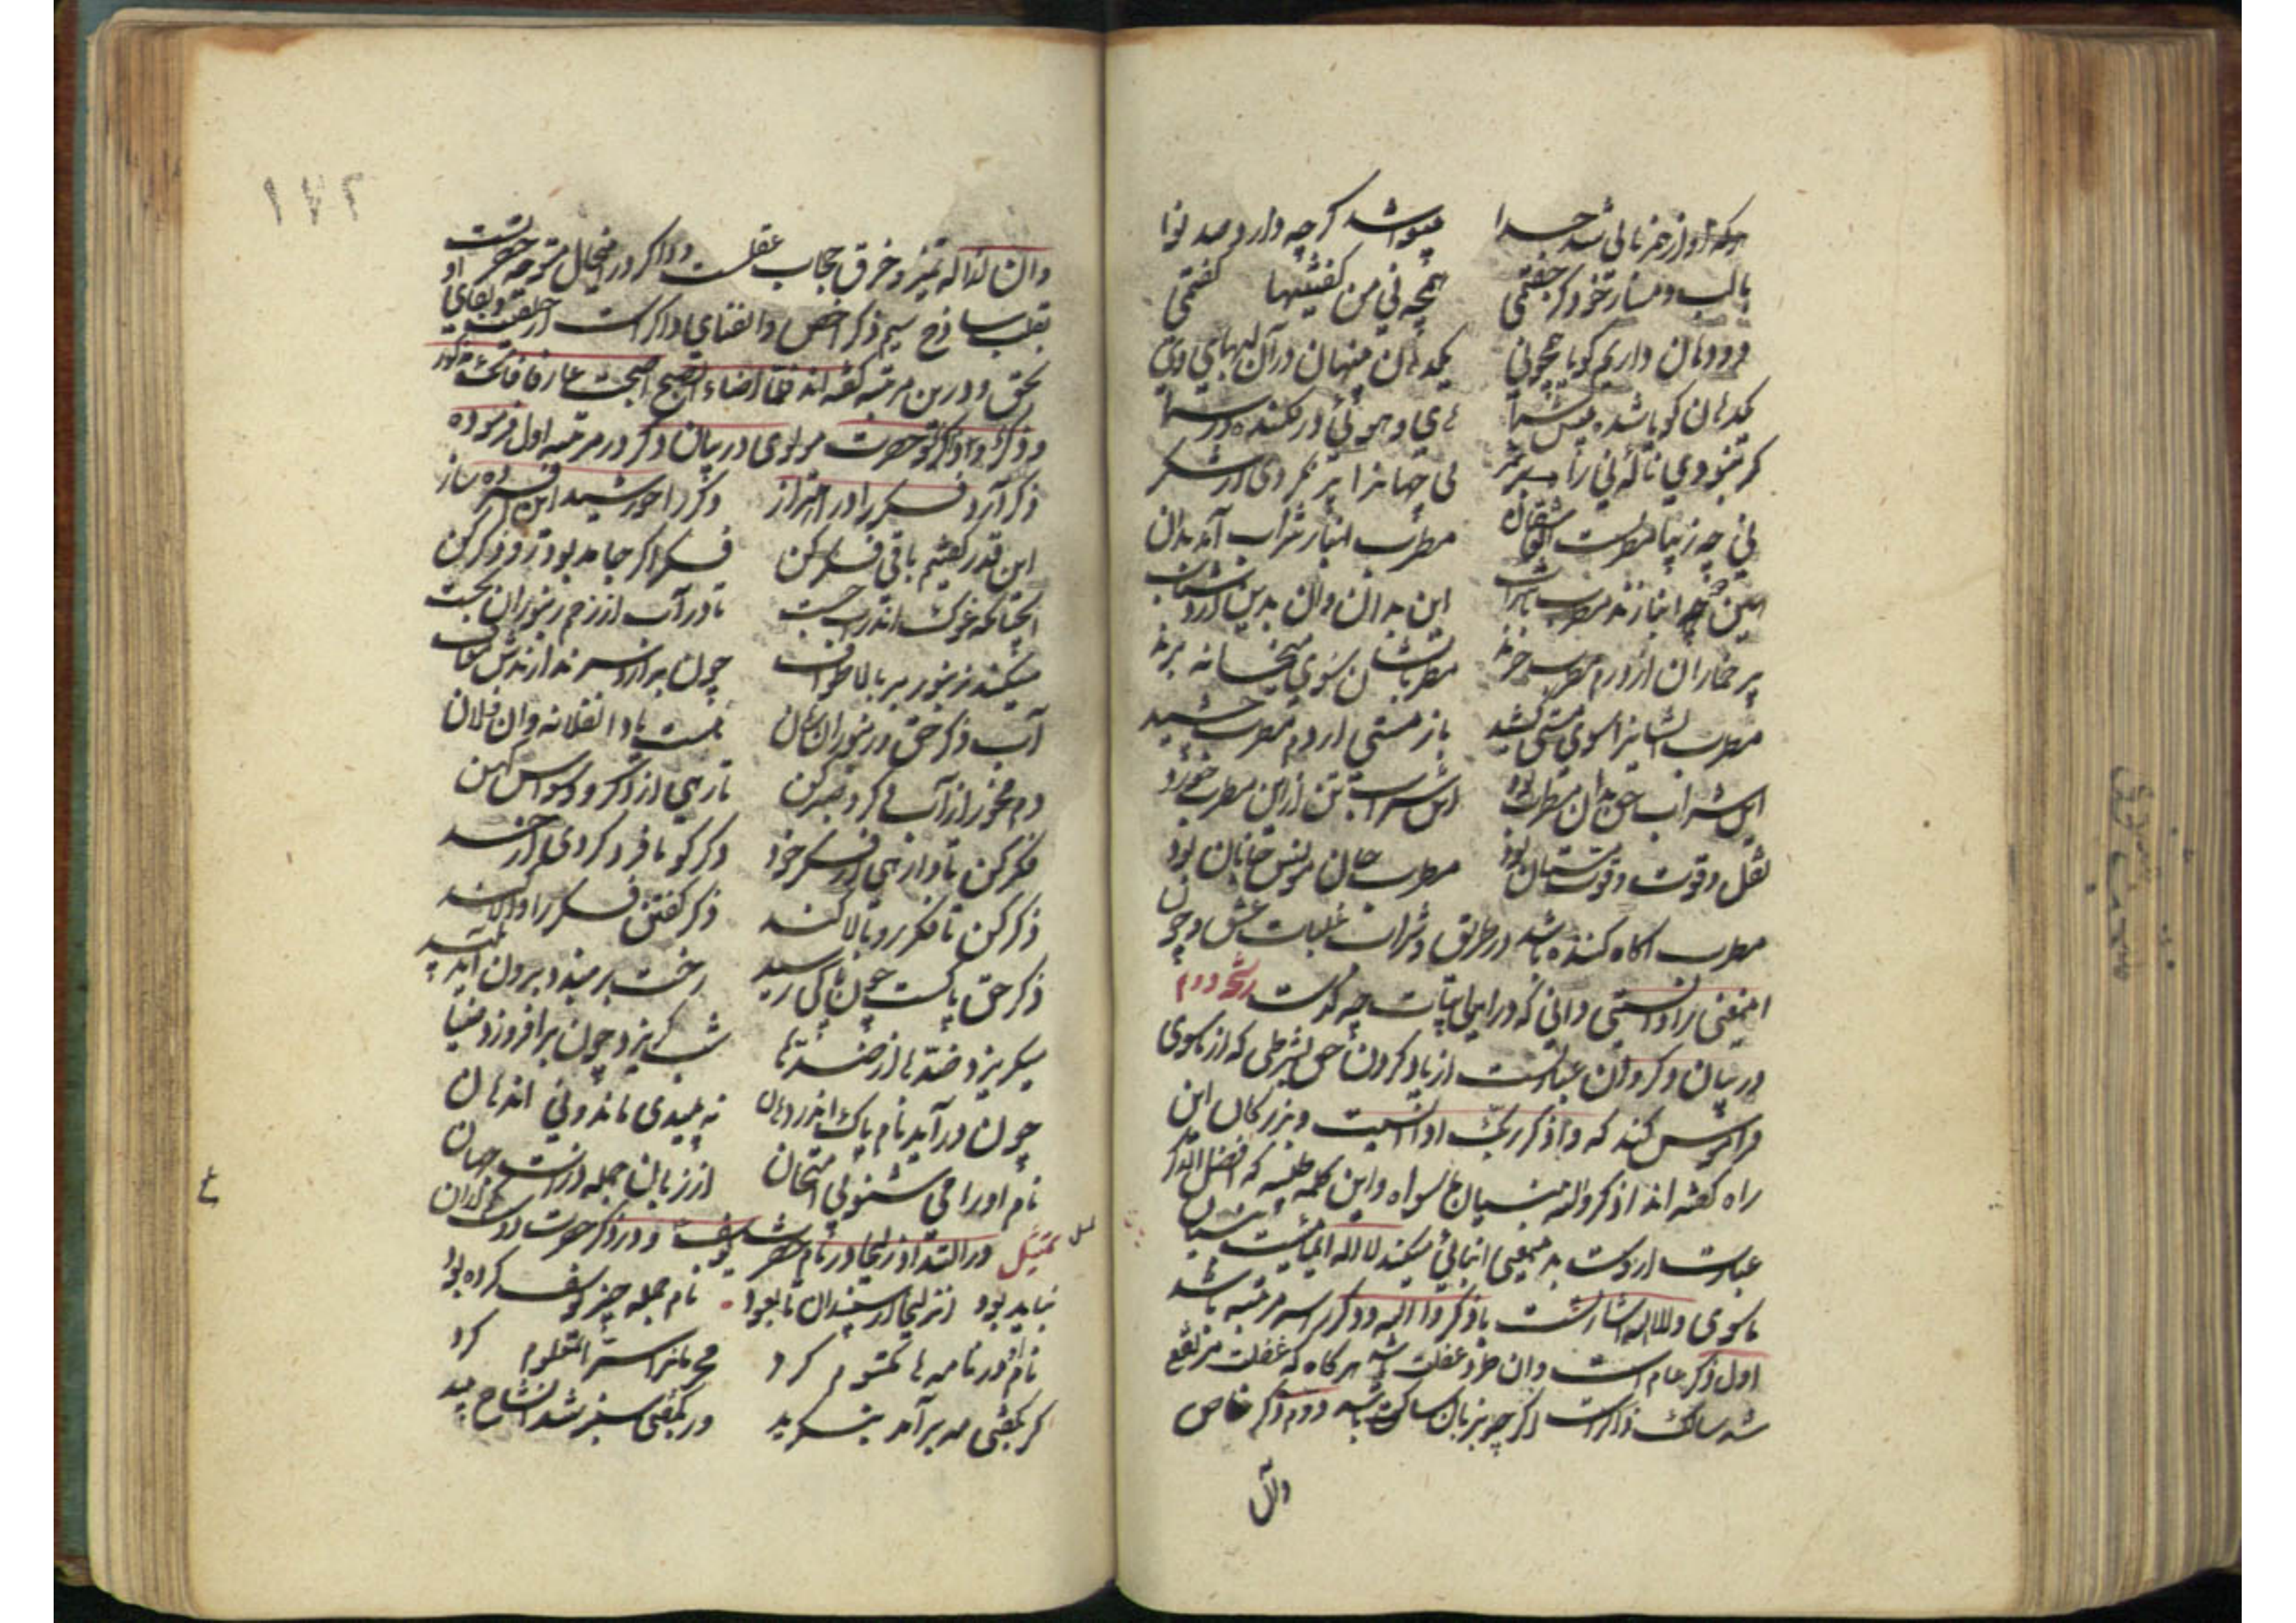 هرکه او از همزبانی شد جدا بینوا شد گرچه دارد صد نوا
با لب دمساز خود گر جفتمی همچو نی من گفتنیها گفتمی
دو دهان داریم گویا همچو نی یکدهان پنهان در آن لبهای وی
یکدهان گویا شده پیش شما های و هویی در فکنده در سما
گر نبودی ناله نی را ثمر نی جهانرا پر نکردی از شکر
مطرب انباز شراب آمد بدان
این بدان وان بدین
پر خماران از دم مطرب چرند مطربانشان سوی میخانه برند
مطرب ایشانرا سوی مستی کشید باز مستی از دم مطرب چشید
این شراب حق بدان مطرب بود این شراب تن ازین مطرب خورد
نقل و قوت و قوت مستان بود مطرب جان مونس جانان بود
مطرب آگاه کننده باشد در طریق و شراب غلبات عشق و چون
اینمعنی را دانستی دانی که در این ابیات چه گفت رشحه دوم
در بیان ذکر و آن عبارتست از یاد کردن حق بشرطی که از ماسوی
فراموش کند که واذکر ربک اذا نسیت و بزرگان این
راه گفته اند اذکر والله نسیان ما سواه و این کلمه طیبه که افضل الذکر
عبارت ازوست بدینمعنی ایمائی میکند لا اله
ماسوی و الا الله اشارتست باذکروا الله و ذکر را سه مرتبه باشد
اول ذکر عام است و آن طرد غفلت باشد هرگاه که غفلت مرتفع
شد سالک ذاکر است اگرچه بزبان ساکت باشد دوم ذکر خاص
وآن
۱۷۲
وان ازاله تمیز و خرق حجاب عقلست و ذاکر در اینحال متوجه حضرتست
بقلب ساذج سیم ذکر اخص و آن فنای ذاکر است از خلقیت و بقای او
بحق و درین مرتبه گفته اند فلما اضاء الصبح اصبحت عارفا فانک مذکور
و ذکر و ذاکر حضرت مولوی در بیان ذکر در مرتبه اول فرموده
ذکر آرد فکر را در اهتزاز ذکر را خورشید این افسرده ساز
این قدر گفتیم باقی فکر کن فکر اگر جامد بود رو ذکر کن
آنچنانکه غوک اندر آب جست تا در آب از زخم زنبوران بجست
میکند زنبور بر بالا طواف چون برآرد سر ندارندش معاف
آب ذکر حق و زنبور این زمان هست یاد آنفلانه وان فلان
دم مخور از آب ذکر و صبر کن تا رهی از ذکر و وسواس کهن
فکر کن تا وارهی از فکر خود ذکر گو تا فرد گردی از جسد
ذکر کن تا فکر رو بالا کند ذکر گفتن فکر را والا کند
ذکر حق پاکست چون پاکی رسید رخت بربندد برون آید پلید
میگریزد ضدها از ضدها شب گریزد چون برافروزد ضیا
چون درآید نام پاک اندر دهان نه پلیدی ماند و نی آن دهان
نام او را می شنو بی امتحان از زبان جمله ذرات جهان
تمثیل در التذاذ زلیخا در نام حضرت یوسف و در ذکر حضرت دوست ازان
نباید بود آن زلیخا از سپندان تا بعود نام جمله چیز یوسف کرده بود
نام او در نامه ها مکتوم کرد محرمانرا سر آن معلوم کرد
گر بگفتی مه برآمد بنگرید ور بگفتی سبز شد آن شاخ بید